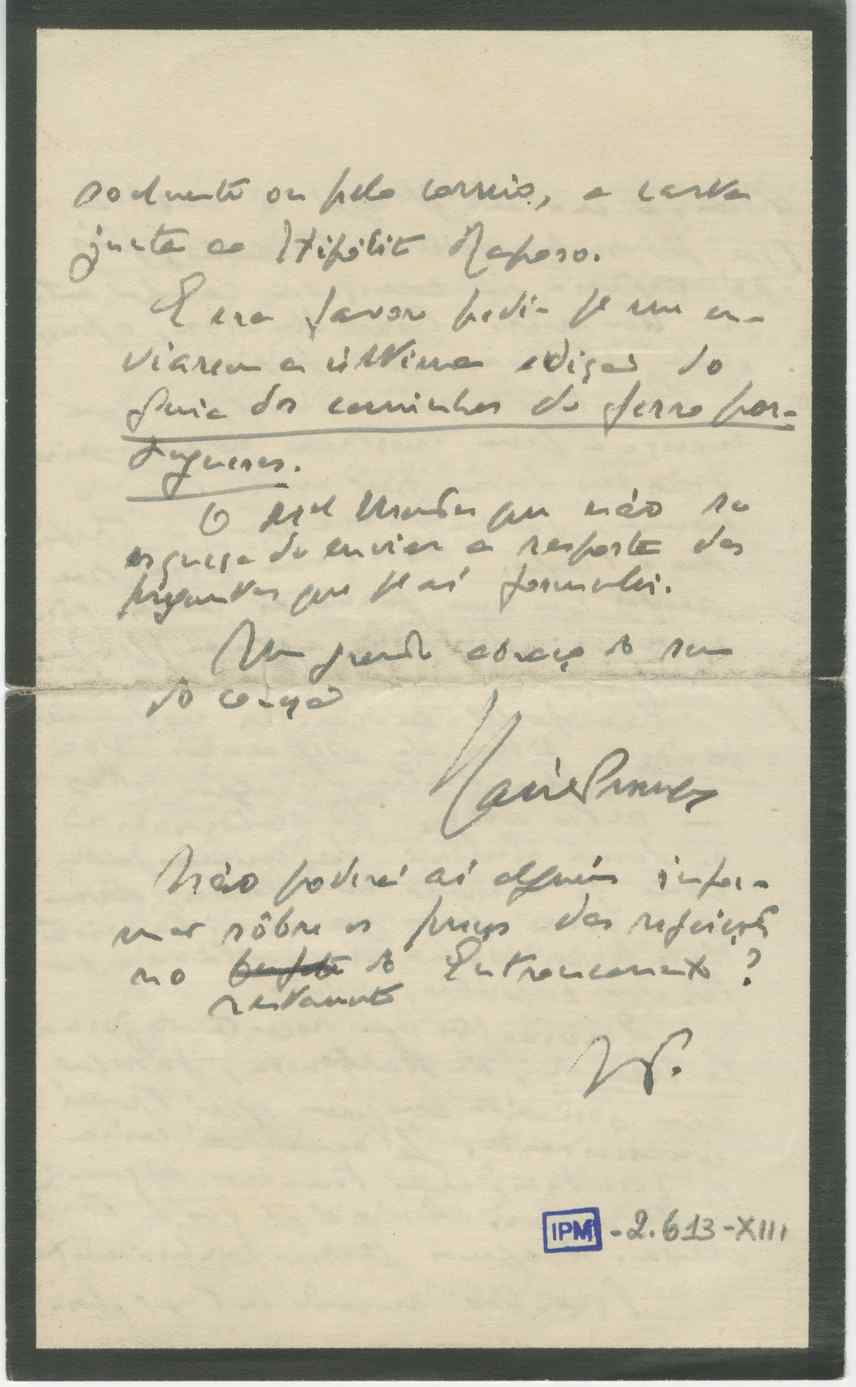 soalmente ou pelo correio, a carta
junta ao Hipólito Raposo.
E era favor pedir p.ª me en-
viarem a última edição do
Guia dos caminhos de ferro por-
tugueses.
O que não se
esqueça de enviar a resposta das
preguntas que p.ª aí formulei.
Um grande abraço do seu
do coração
Não poderá aí alguém infor-
mar sôbre os preços das refeições
no bufete do Entroncamento?
restaurante
IPM - 2.613-XIII